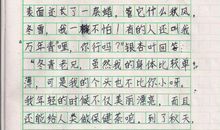 表面还长了一层蜡，管它什么秋风、
冬雪，我一 不怕！有的人还叫我
万年青"哩，你行吗？"银杏叶回答：
"冬青老兄，虽然我的身体比较单
薄，可是我的个头也不比你小呀。
我年轻的时候不仅美丽漂亮，而且
还能给人类做保健茶呢，到了秋天，